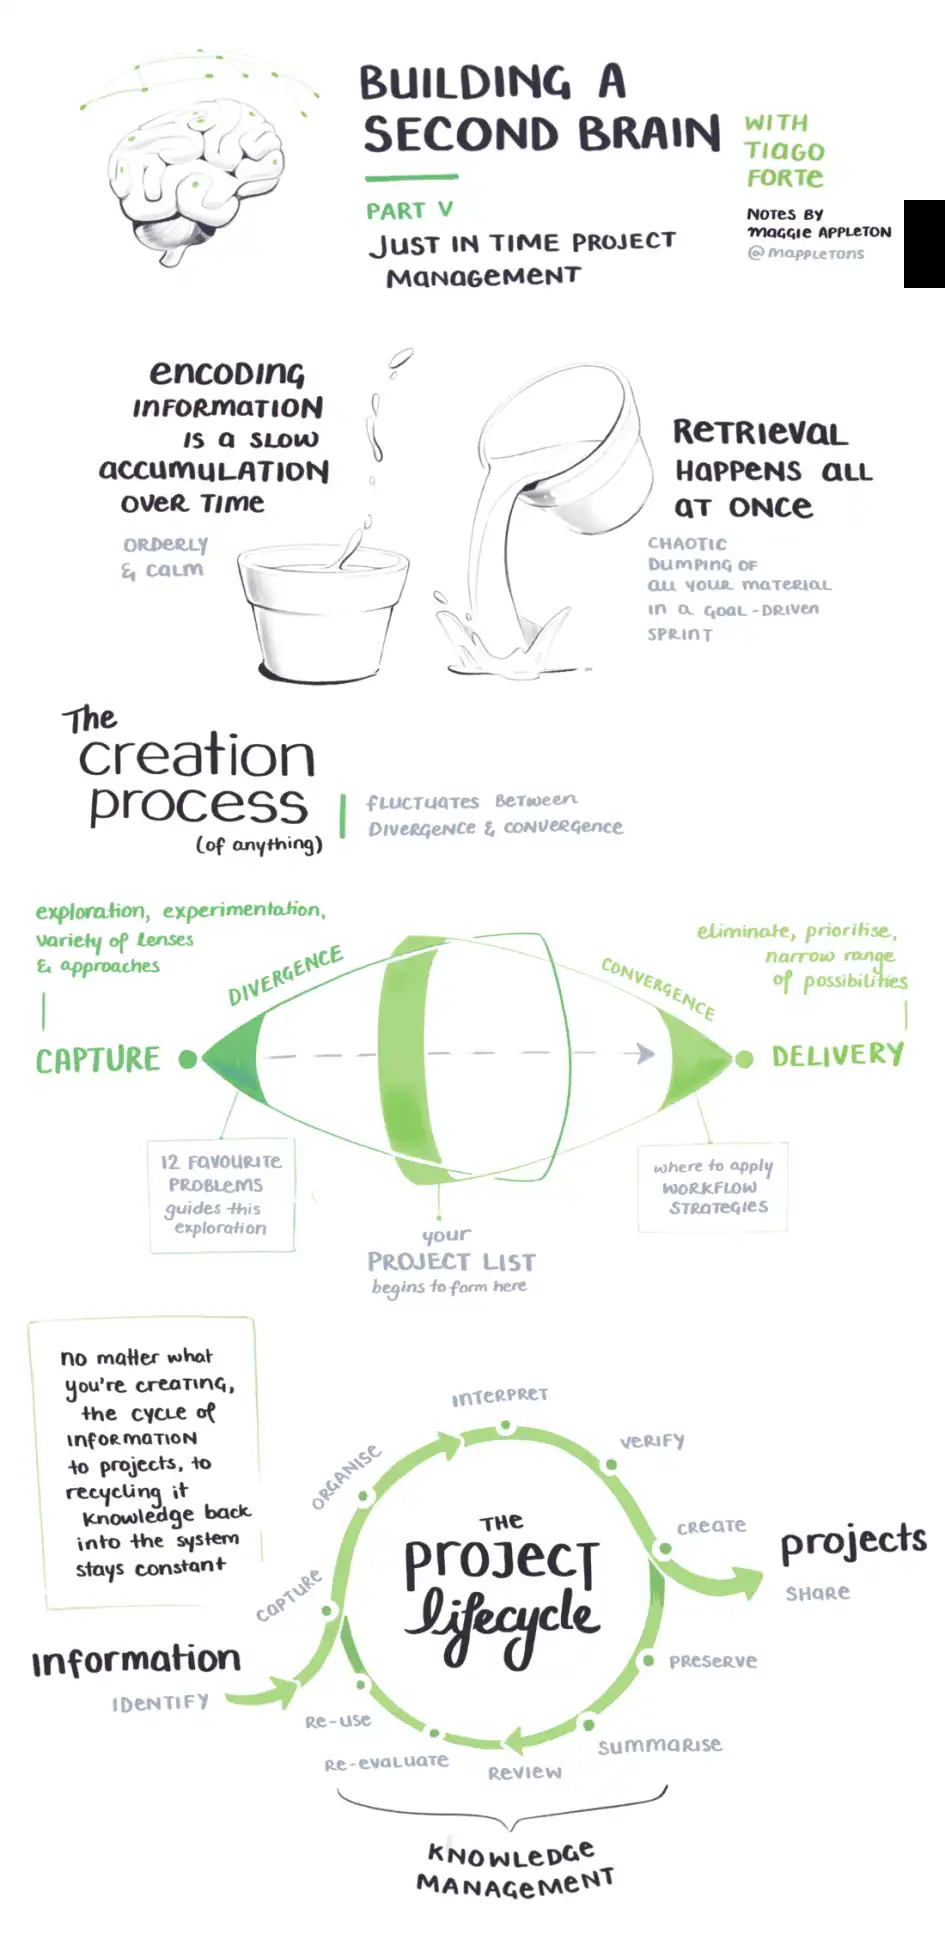 BUILDING A
SECOND BRAIN
WITH
TIAGO
FORTE
PART V
JUST IN TIME PROJECT
MANAGEMENT
NOTES BY
MAGGIE APPLETON
@MAPPLETONS
ENCODING
INFORMATION
IS A SLOW
ACCUMULATION
OVER TIME
ORDERLY
& CALM
RETRIEVAL
HAPPENS ALL
AT ONCE
CHAOTIC
DUMPING OF
ALL YOUR MATERIAL
IN A GOAL-DRIVEN
SPRINT
The
creation
process
(of anything)
FLUCTUATES BETWEEN
DIVERGENCE & CONVERGENCE
exploration, experimentation,
variety of lenses
& approaches
DIVERGENCE
CONVERGENCE
eliminate, prioritise,
narrow range
of possibilities
CAPTURE
DELIVERY
12 FAVOURITE
PROBLEMS
guides this
exploration
your
PROJECT LIST
begins to form here
where to apply
WORKFLOW
STRATEGIES
no matter what
you're creating,
the cycle of
information
to projects, to
recycling it
knowledge back
into the system
stays constant
INTERPRET
VERIFY
ORGANISE
CREATE
CAPTURE
THE
PROJECT
lifecycle
projects
SHARE
information
IDENTIFY
PRESERVE
RE-USE
SUMMARISE
RE-EVALUATE
REVIEW
KNOWLEDGE
MANAGEMENT